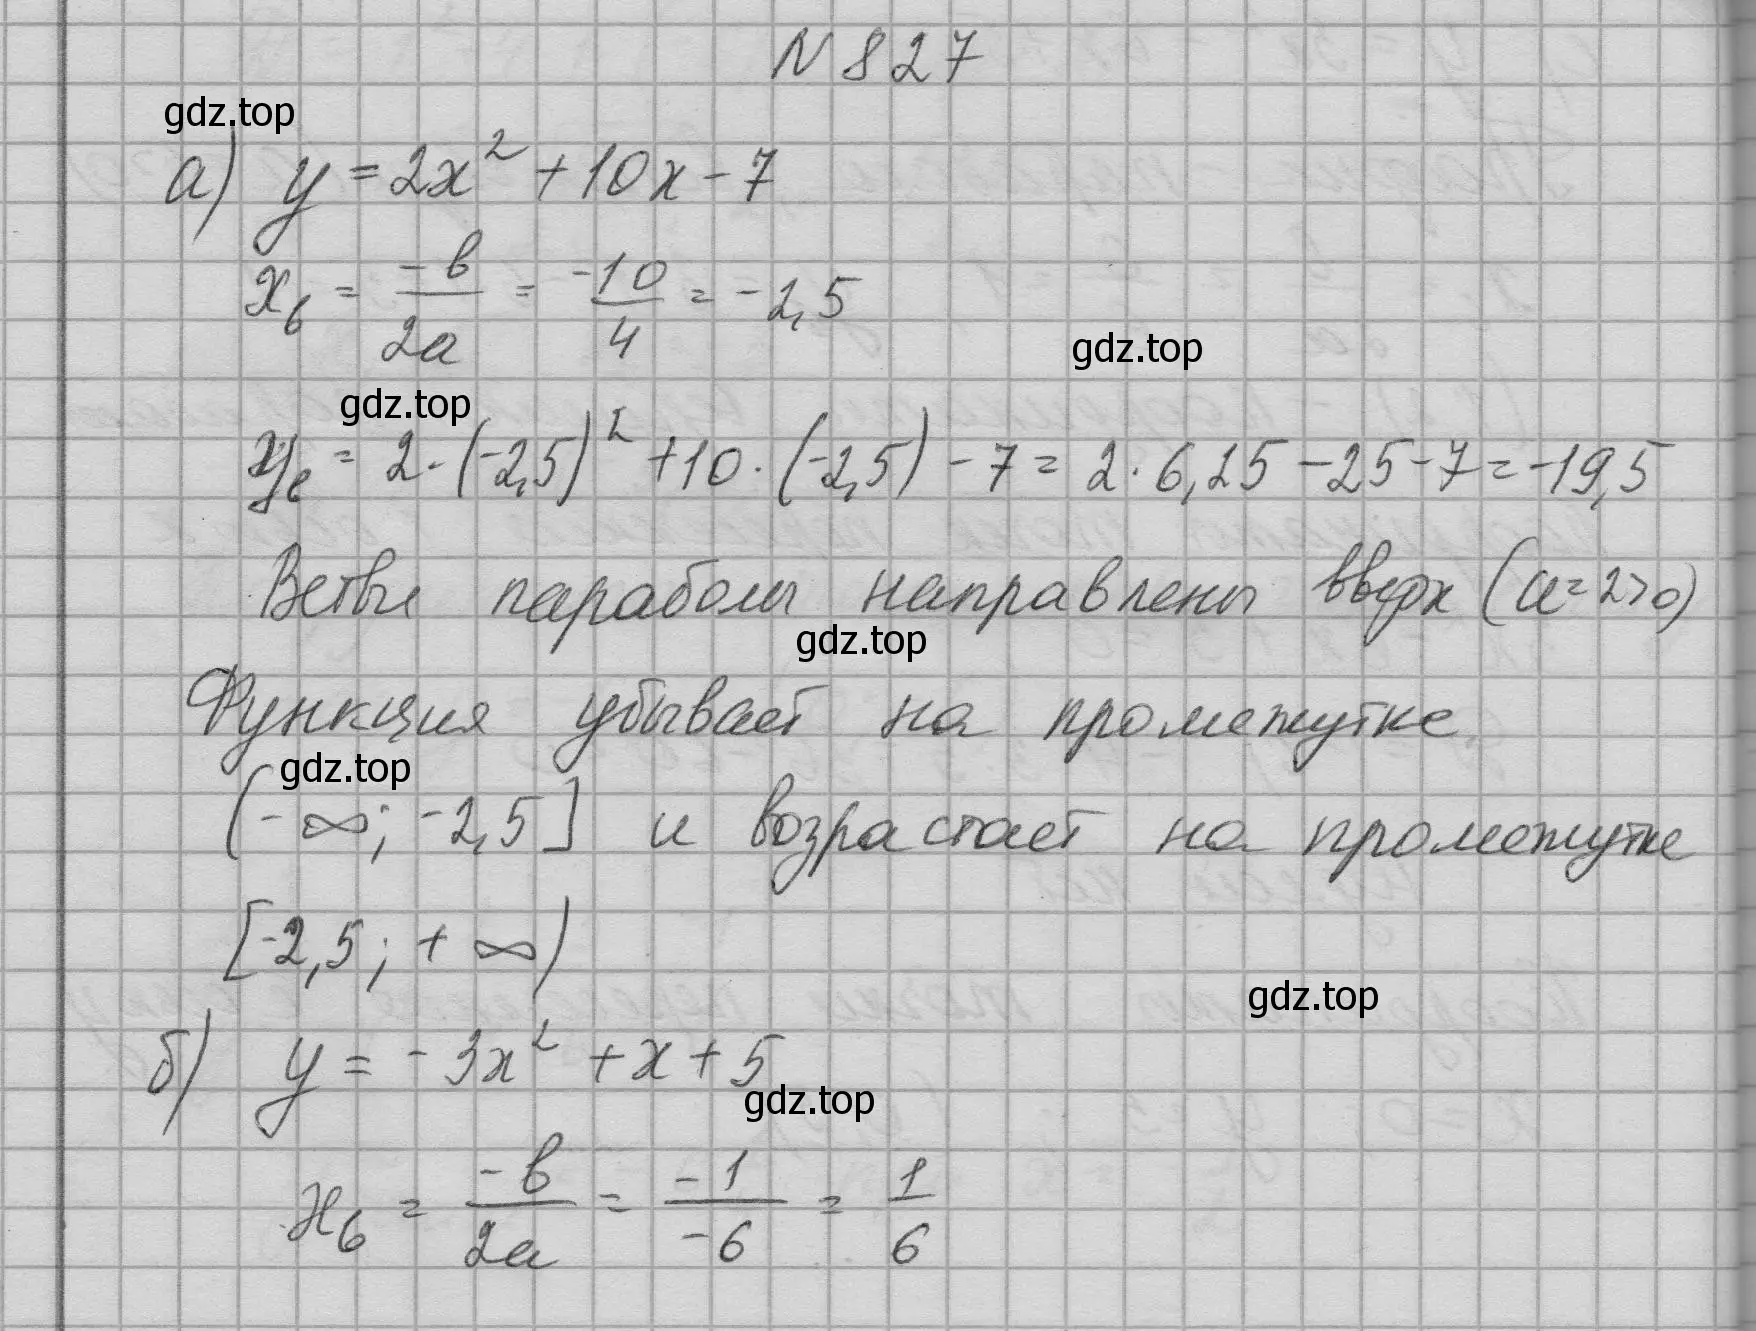 N 827
gdz.top
а) y = 2x² + 10x - 7
x_в = -b/2a = -10/4 = -2,5
gdz.top
gdz.top
y_в = 2·(-2,5)² + 10·(-2,5) - 7 = 2·6,25 - 25 - 7 = -19,5
Ветви параболы направлены вверх (a=2>0)
gdz.top
Функция убывает на промежутке
gdz.top
(-∞; -2,5] и возрастает на промежутке
[-2,5; +∞)
gdz.top
б) y = -3x² + x + 5
gdz.top
x_в = -b/2a = -1/-6 = 1/6